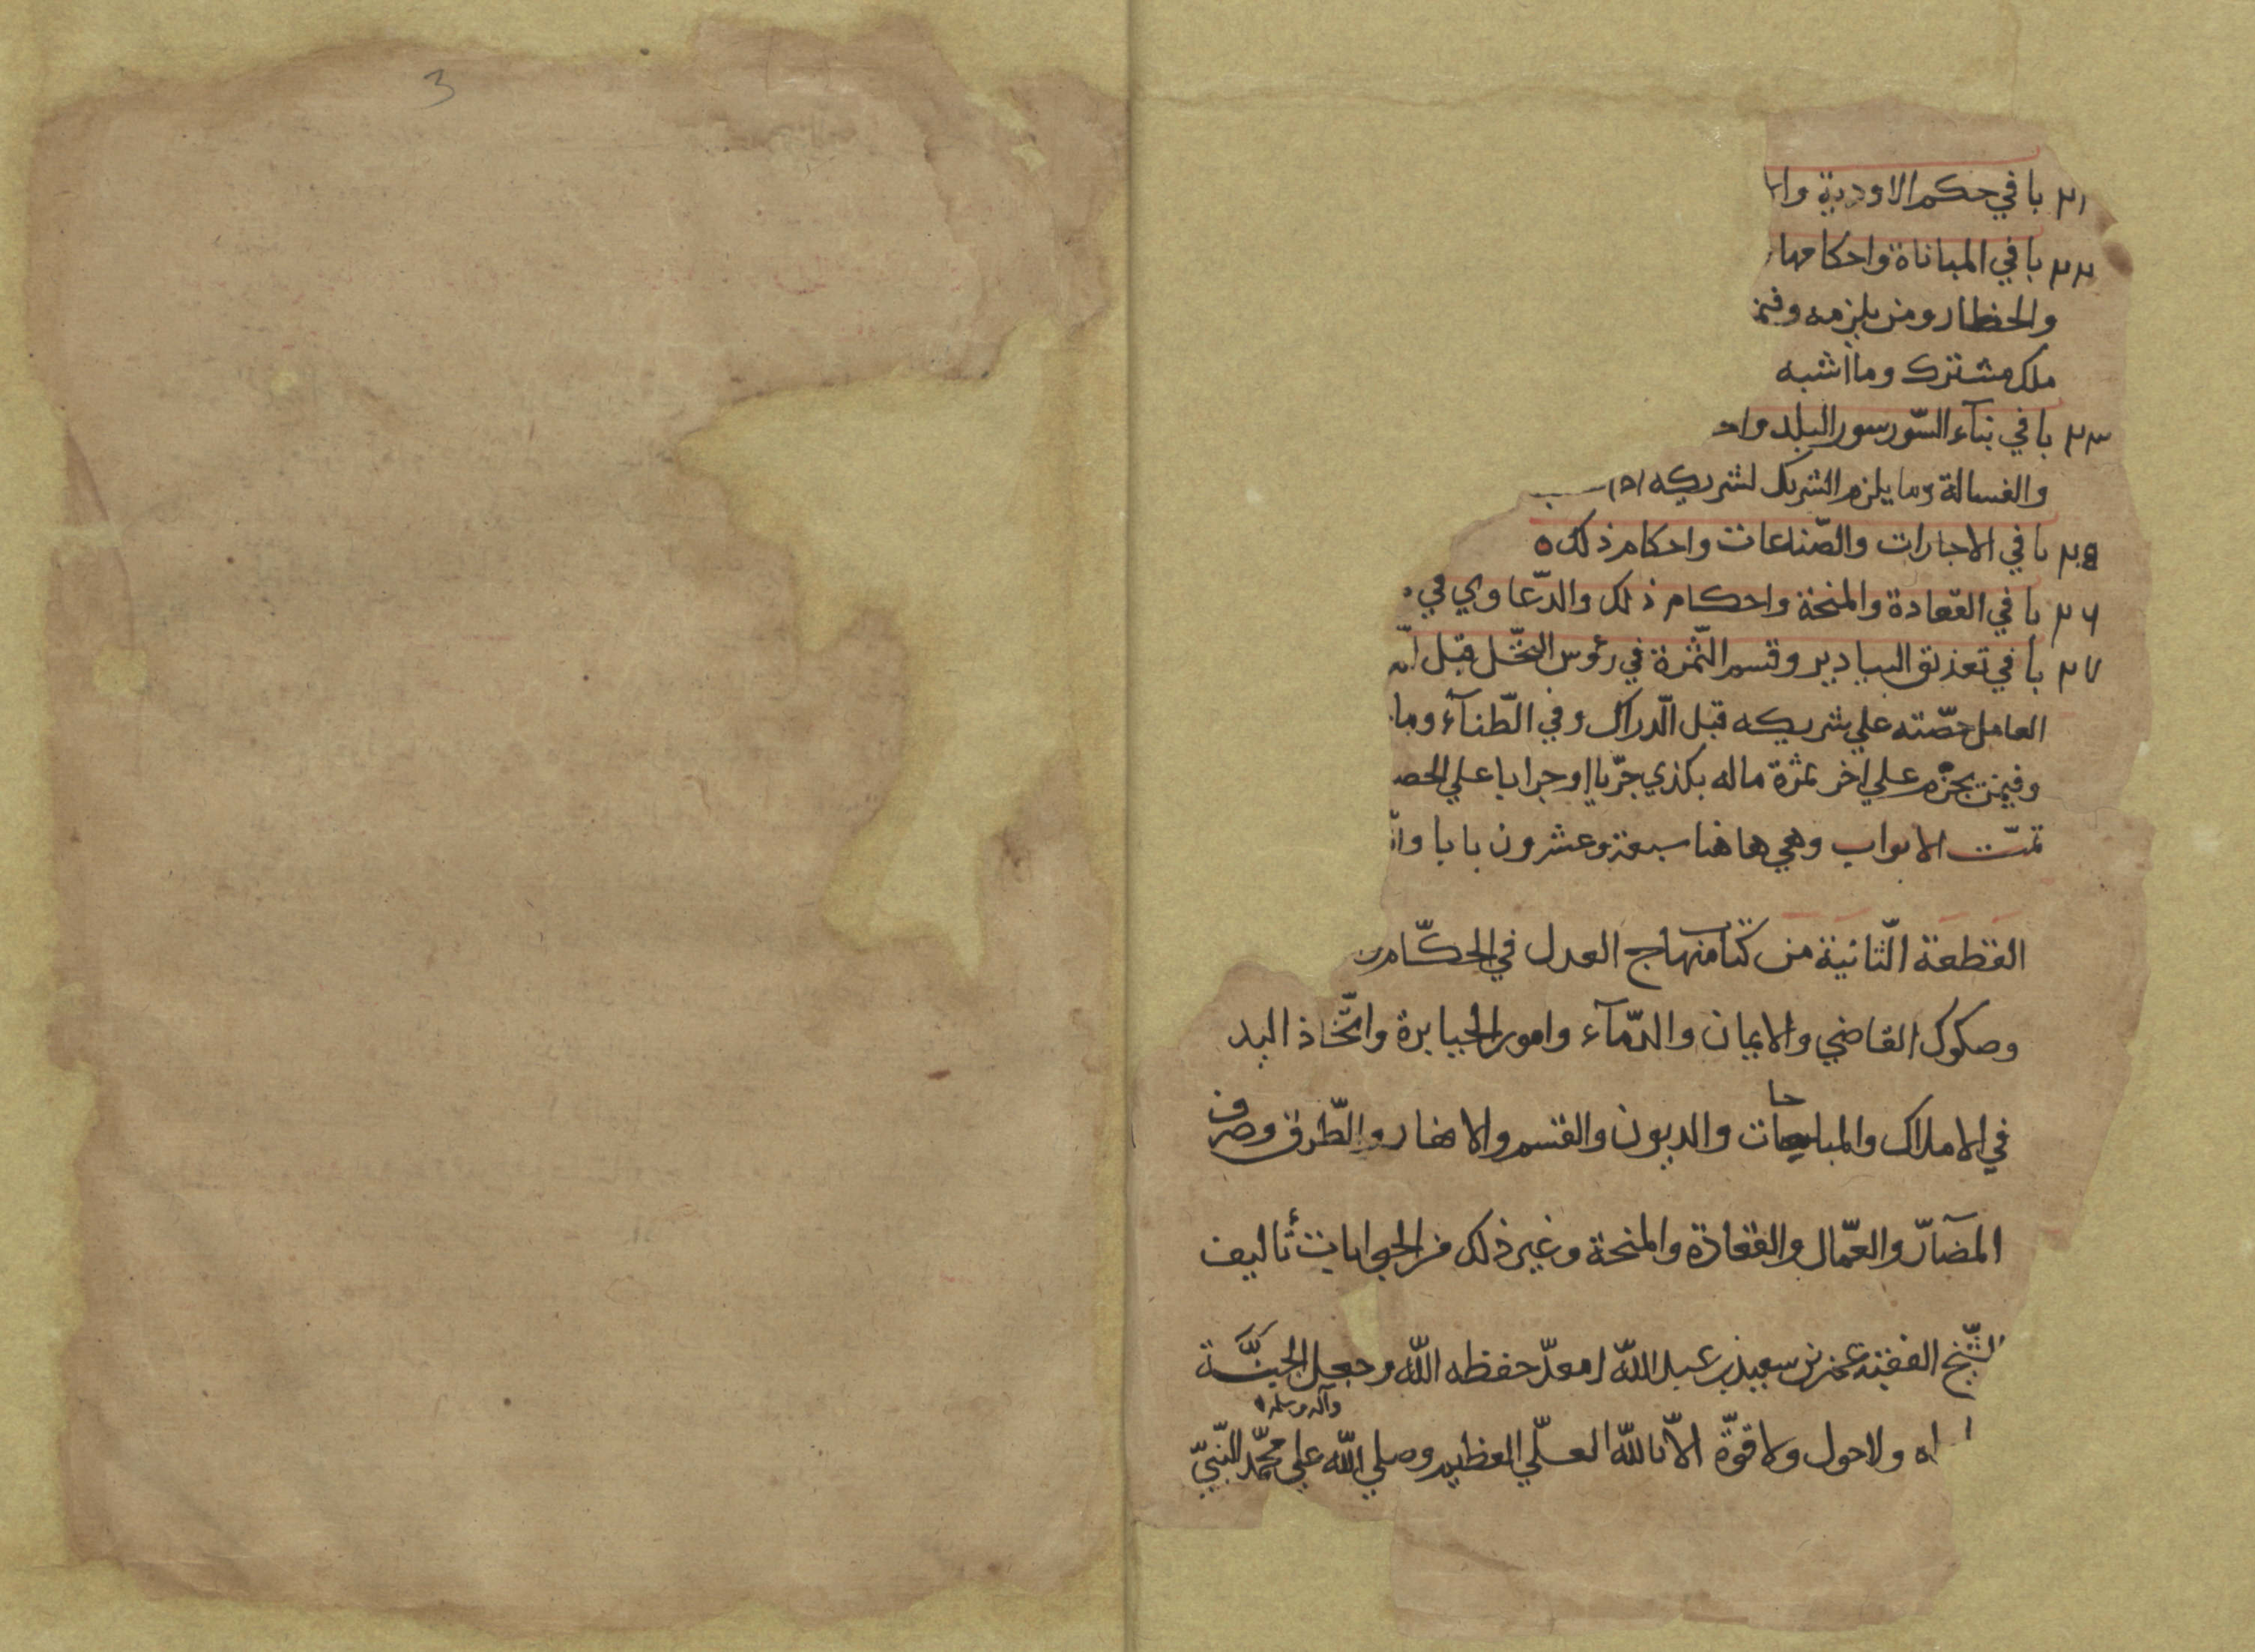 ٢١ با في حكم الاودية وا
٢٢ با في المباناة واحكامها
والحظار ومن يلزمه وفيمن
ملك مشترك وما اشبه
٢٣ با في بنآء السّور سور البلد واح
والفسالة وما يلزم الشريك لشريكه
٢٥ با في الاجارات والصّناعات واحكام ذلك ٥
٢٦ با في القعادة والمنحة واحكام ذلك والدّعاوي في
٢٧ با في تعذيق البيادير وقسم الثّمرة في رؤس النّخل قبل ان
العامل حصّته علي شريكه قبل الدّراك وفي الطّنآء وما
وفيمن يحزم علي اخر ثمرة ماله بكذي جرّيا او جرابا علي الحص
تمّت الابواب وهي هاهنا سبعة وعشرون بابا وا
القطعة الثّانية من كتا منهاج العدل في الحكّام
وصكوك القاضي والايمان والدّمآء وامور الجبابرة واتّخاذ اليد
في الاملاك والمباحات والديون والقسم والانهار والطّرق وصرف
حا
المضآرّ والعمّال والقعادة والمنحة وغير ذلك من الجوابات تأليف
الشّيخ الفقيه عمر بن سعيد بن عبد اللّه امعدّ حفظه اللّه وجعل الجنّة
اه ولا حول ولا قوّة الاّ باللّه العلّي العظيم وصلي اللّه علي محمّد النّبيّ
وآله وسلم
3